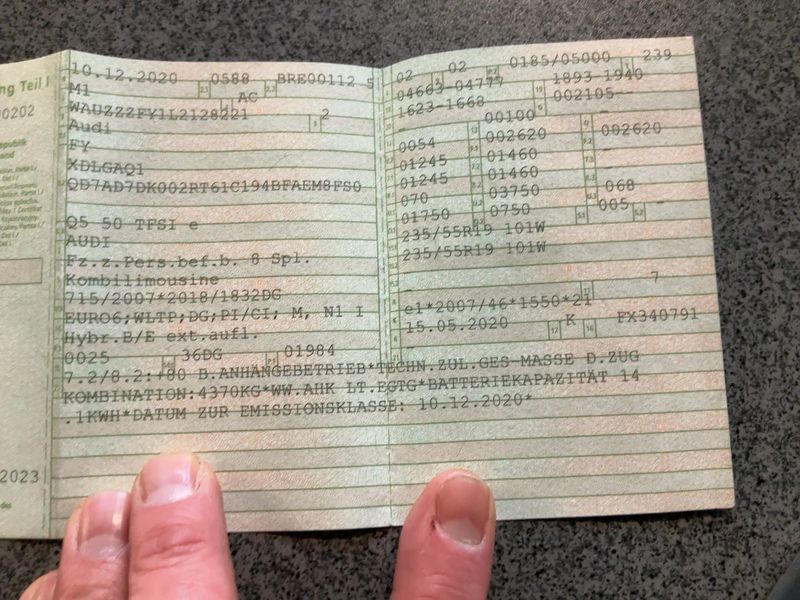 ng Teil I
00202
10.12.2020 0588 BRE00112 5
M1 AC
WAUZZZFY1L2128221 2
Audi
FY
XDLGAQ1
QD7AD7DK002RT61C194BFAEM8FS0
Q5 50 TFSI e
AUDI
Fz.z.Pers.bef.b. 8 Spl.
Kombilimousine
715/2007*2018/1832DG
EURO6;WLTP;DG;PI/CI; M, N1 I
Hybr.B/E ext.aufl.
0025 36DG 01984
7.2/8.2:+80 B.ANHÄNGEBETRIEB*TECHN.ZUL.GES MASSE D.ZUG
KOMBINATION:4370KG*WW.AHK LT.EGTG*BATTERIEKAPAZITÄT 14
.1KWH*DATUM ZUR EMISSIONSKLASSE: 10.12.2020*
2023
02 02 0185/05000 239
04663-04777 1893-1940
1623-1668 002105--
- 00100
0054 002620 002620
01245 01460
01245 01460
070 03750 068
01750 0750 005 -
235/55R19 101W
235/55R19 101W
- 7
e1*2007/46*1550*21
15.05.2020 K FX340791